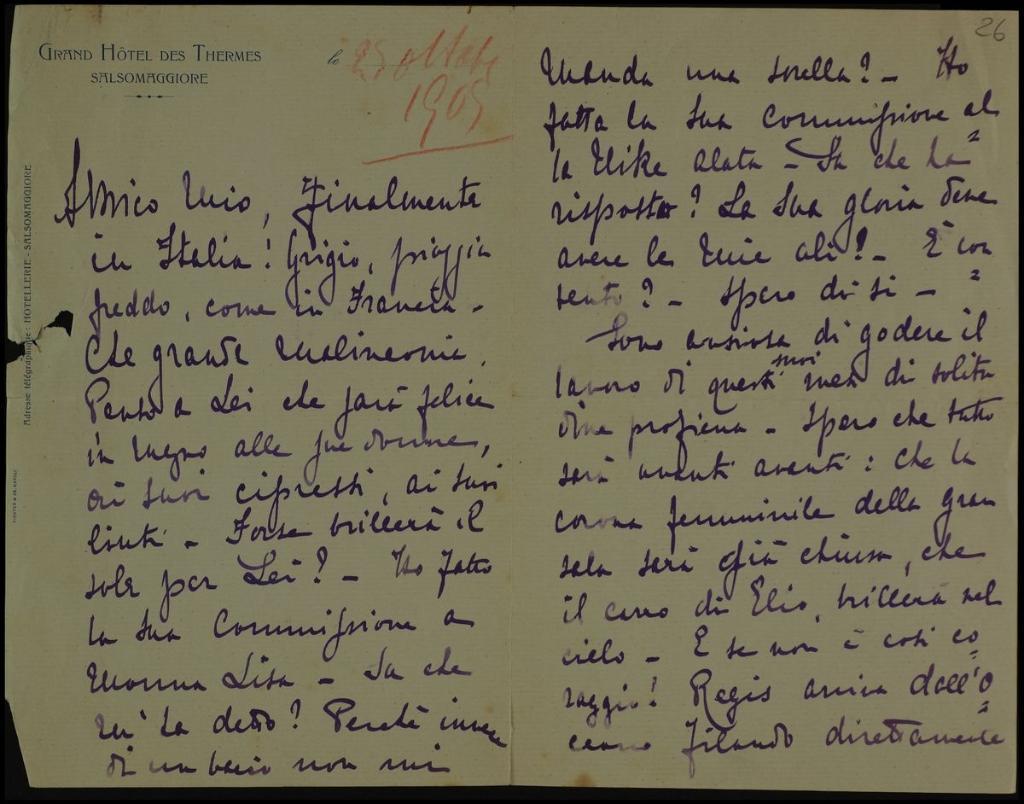 26
GRAND HÔTEL DES THERMES
SALSOMAGGIORE
le 25 ottobre
1905
Adresse télégraphique: HOTELLERIE - SALSOMAGGIORE
Amico mio, Finalmente
in Italia! Grigio, pioggia
freddo, come in Francia -
Che grande malinconia.
Penso a Lei che sarà felice
in mezzo alle sue donne,
ai suoi cipressi, ai suoi
liuti - Forse brillerà il
sole per Lei? - Ho fatto
la sua Commissione a
Monna Lisa - Sa che
m'ha detto? Perché invece
di un bacio non mi
manda una sorella? - Ho
fatta la sua Commissione al=
la Nike alata - Sa che ha
risposto? La sua gloria deve
avere le mie ali! - È con=
tento? - Spero di sì -
Sono ansiosa di godere il
lavoro di questi suoi mesi di solitu
dine proficua - Spero che tutto
sarà avanti avanti: che la
corona femminile della gran
sala sarà già chiusa, che
il carro di Elio, brillerà nel
cielo - E se non è così co=
raggio! Regis arriva dall'O=
ceano filando direttamente